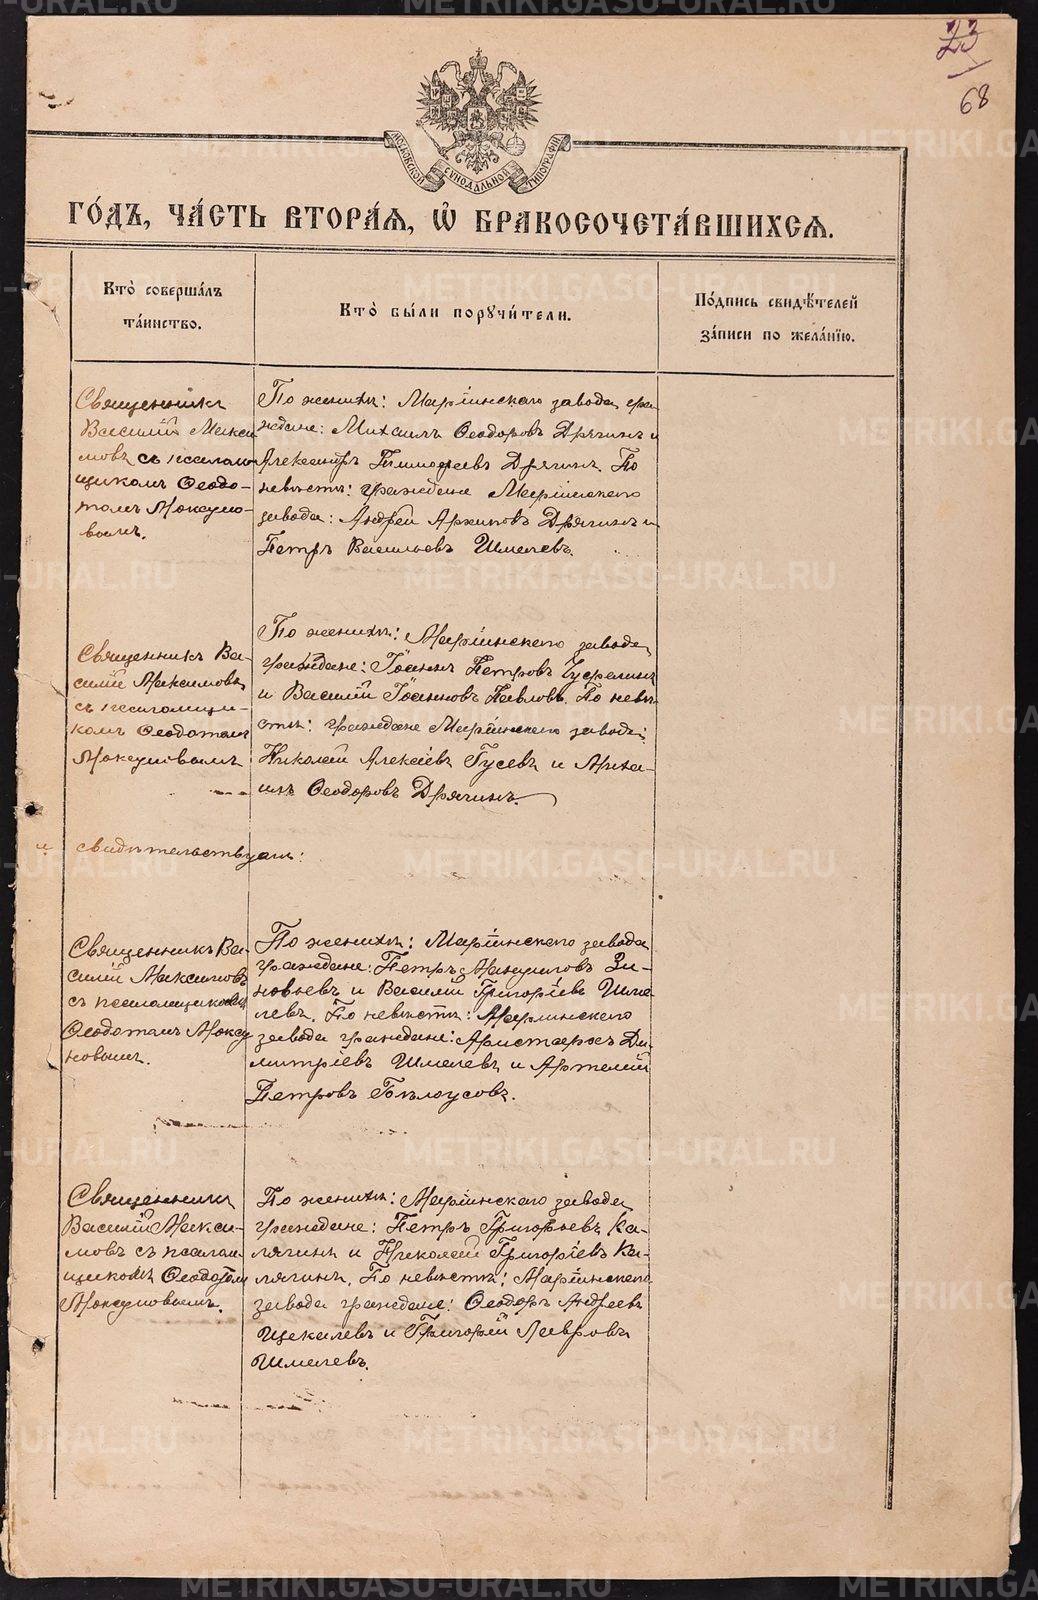 23
68
МОСКОВСКОЙ СѴНОДАЛЬНОЙ ТИПОГРАФІИ
ГО́ДЪ, ЧА́СТЬ ВТОРА́Я, Ѽ БРАКОСОЧЕТА́ВШИХСѦ.
Кто̀ соверша́лъ
та́инство.
Кто̀ бы́ли порꙋчи́тели.
По́дпись свидѣ́телей
за́писи по жела́нїю.
Священникъ
Василій Макси-
мовъ съ псалом-
щикомъ Ѳеодо-
томъ Мокуно-
вымъ.
По женихѣ: Маріинскаго завода гра-
ждане: Михаилъ Ѳеодоровъ Дрягинъ и
Александръ Тимофеевъ Дрягинъ. По
невѣстѣ: граждане Маріинскаго
завода: Андрей Архиповъ Дрягинъ и
Петръ Васильевъ Шмелевъ.
Священникъ Ва-
силій Максимовъ
съ псаломщи-
комъ Ѳеодотомъ
Мокуновымъ
По женихѣ: Маріинскаго завода
граждане: Іоаннъ Петровъ
и Василій Іоанновъ Павловъ. По невѣ-
стѣ: граждане Маріинскаго завода:
Николай Алексѣевъ Гусевъ и Миха-
илъ Ѳеодоровъ Дрягинъ.
свидѣтельствуемъ:
Священникъ Ва-
силій Максимовъ
съ псаломщикомъ
Ѳеодотомъ Моку-
новымъ.
По женихѣ: Маріинскаго завода
граждане: Петръ Мануиловъ Зи-
новьевъ и Василій Григоріевъ Шме-
левъ. По невѣстѣ: Маріинскаго
завода граждане: Аристархъ Ди-
митріевъ Шмелевъ и Артемій
Петровъ Бѣлоусовъ.
Священникъ
Василій Макси-
мовъ съ псалом-
щикомъ Ѳеодотомъ
Мокуновымъ.
По женихѣ: Маріинскаго завода
граждане: Петръ Григорьевъ Ка-
лягинъ и Николай Григоріевъ Ка-
лягинъ. По невѣстѣ: Маріинскаго
завода граждане: Ѳеодоръ Андреевъ
Щекалевъ и Григорій Лавровъ
Шмелевъ.
METRIKI.GASO-URAL.RU